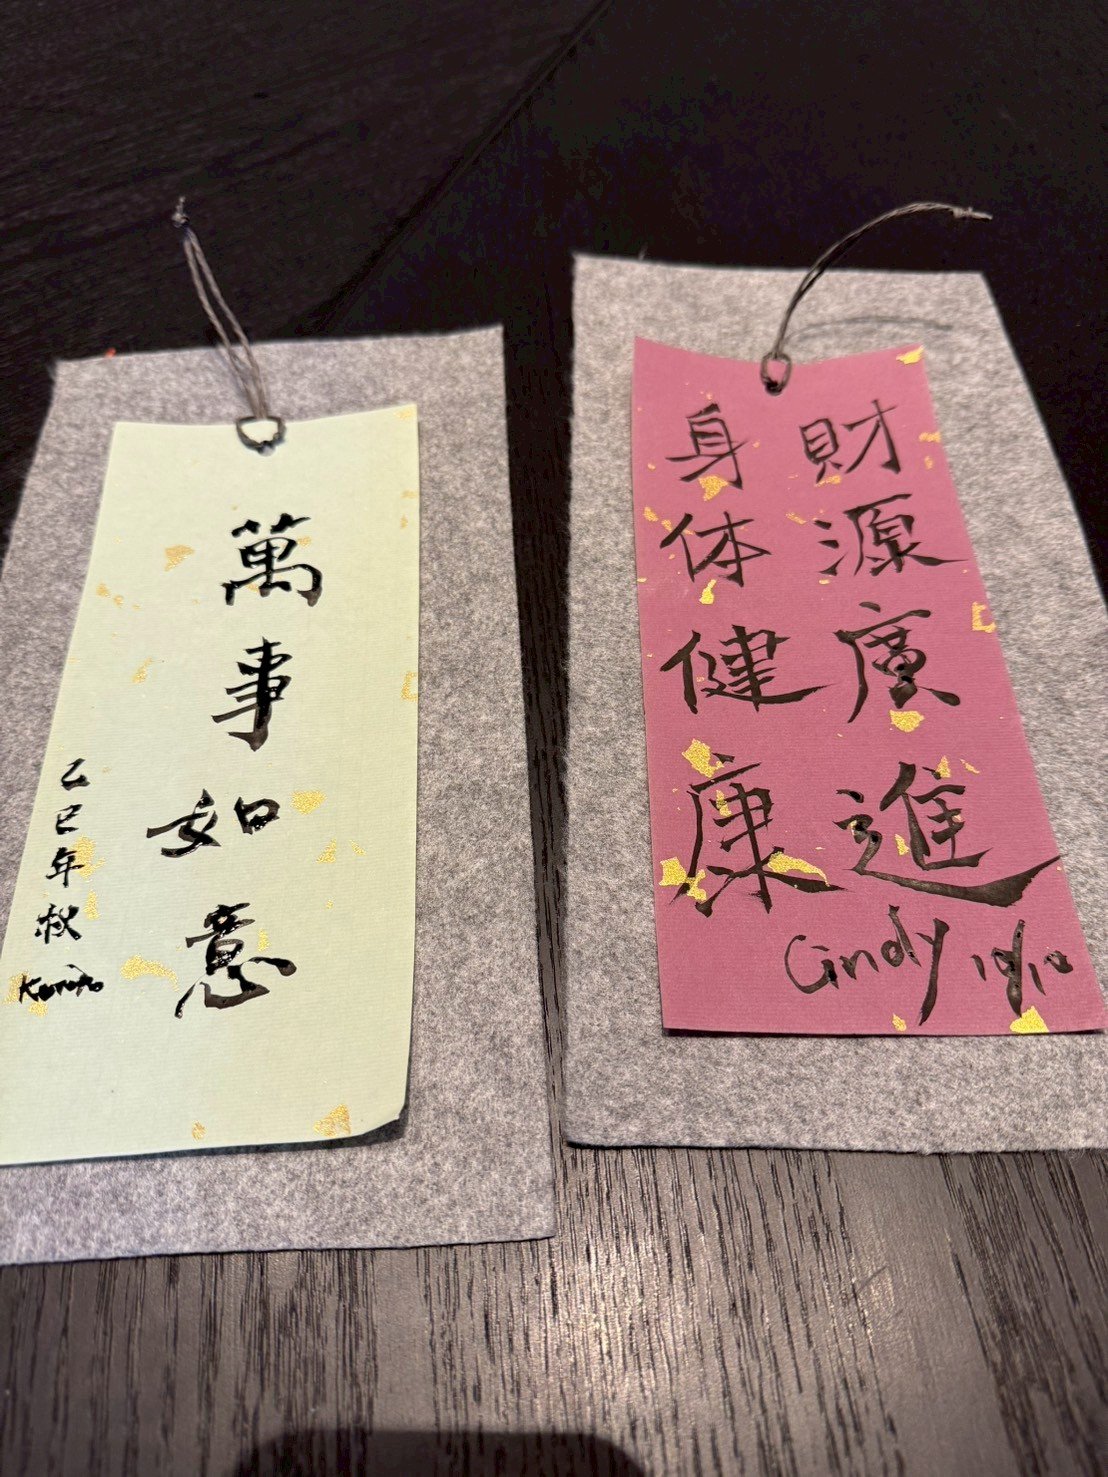 萬事如意
乙巳年秋
財源廣進
身体健康
Cindy 10/10